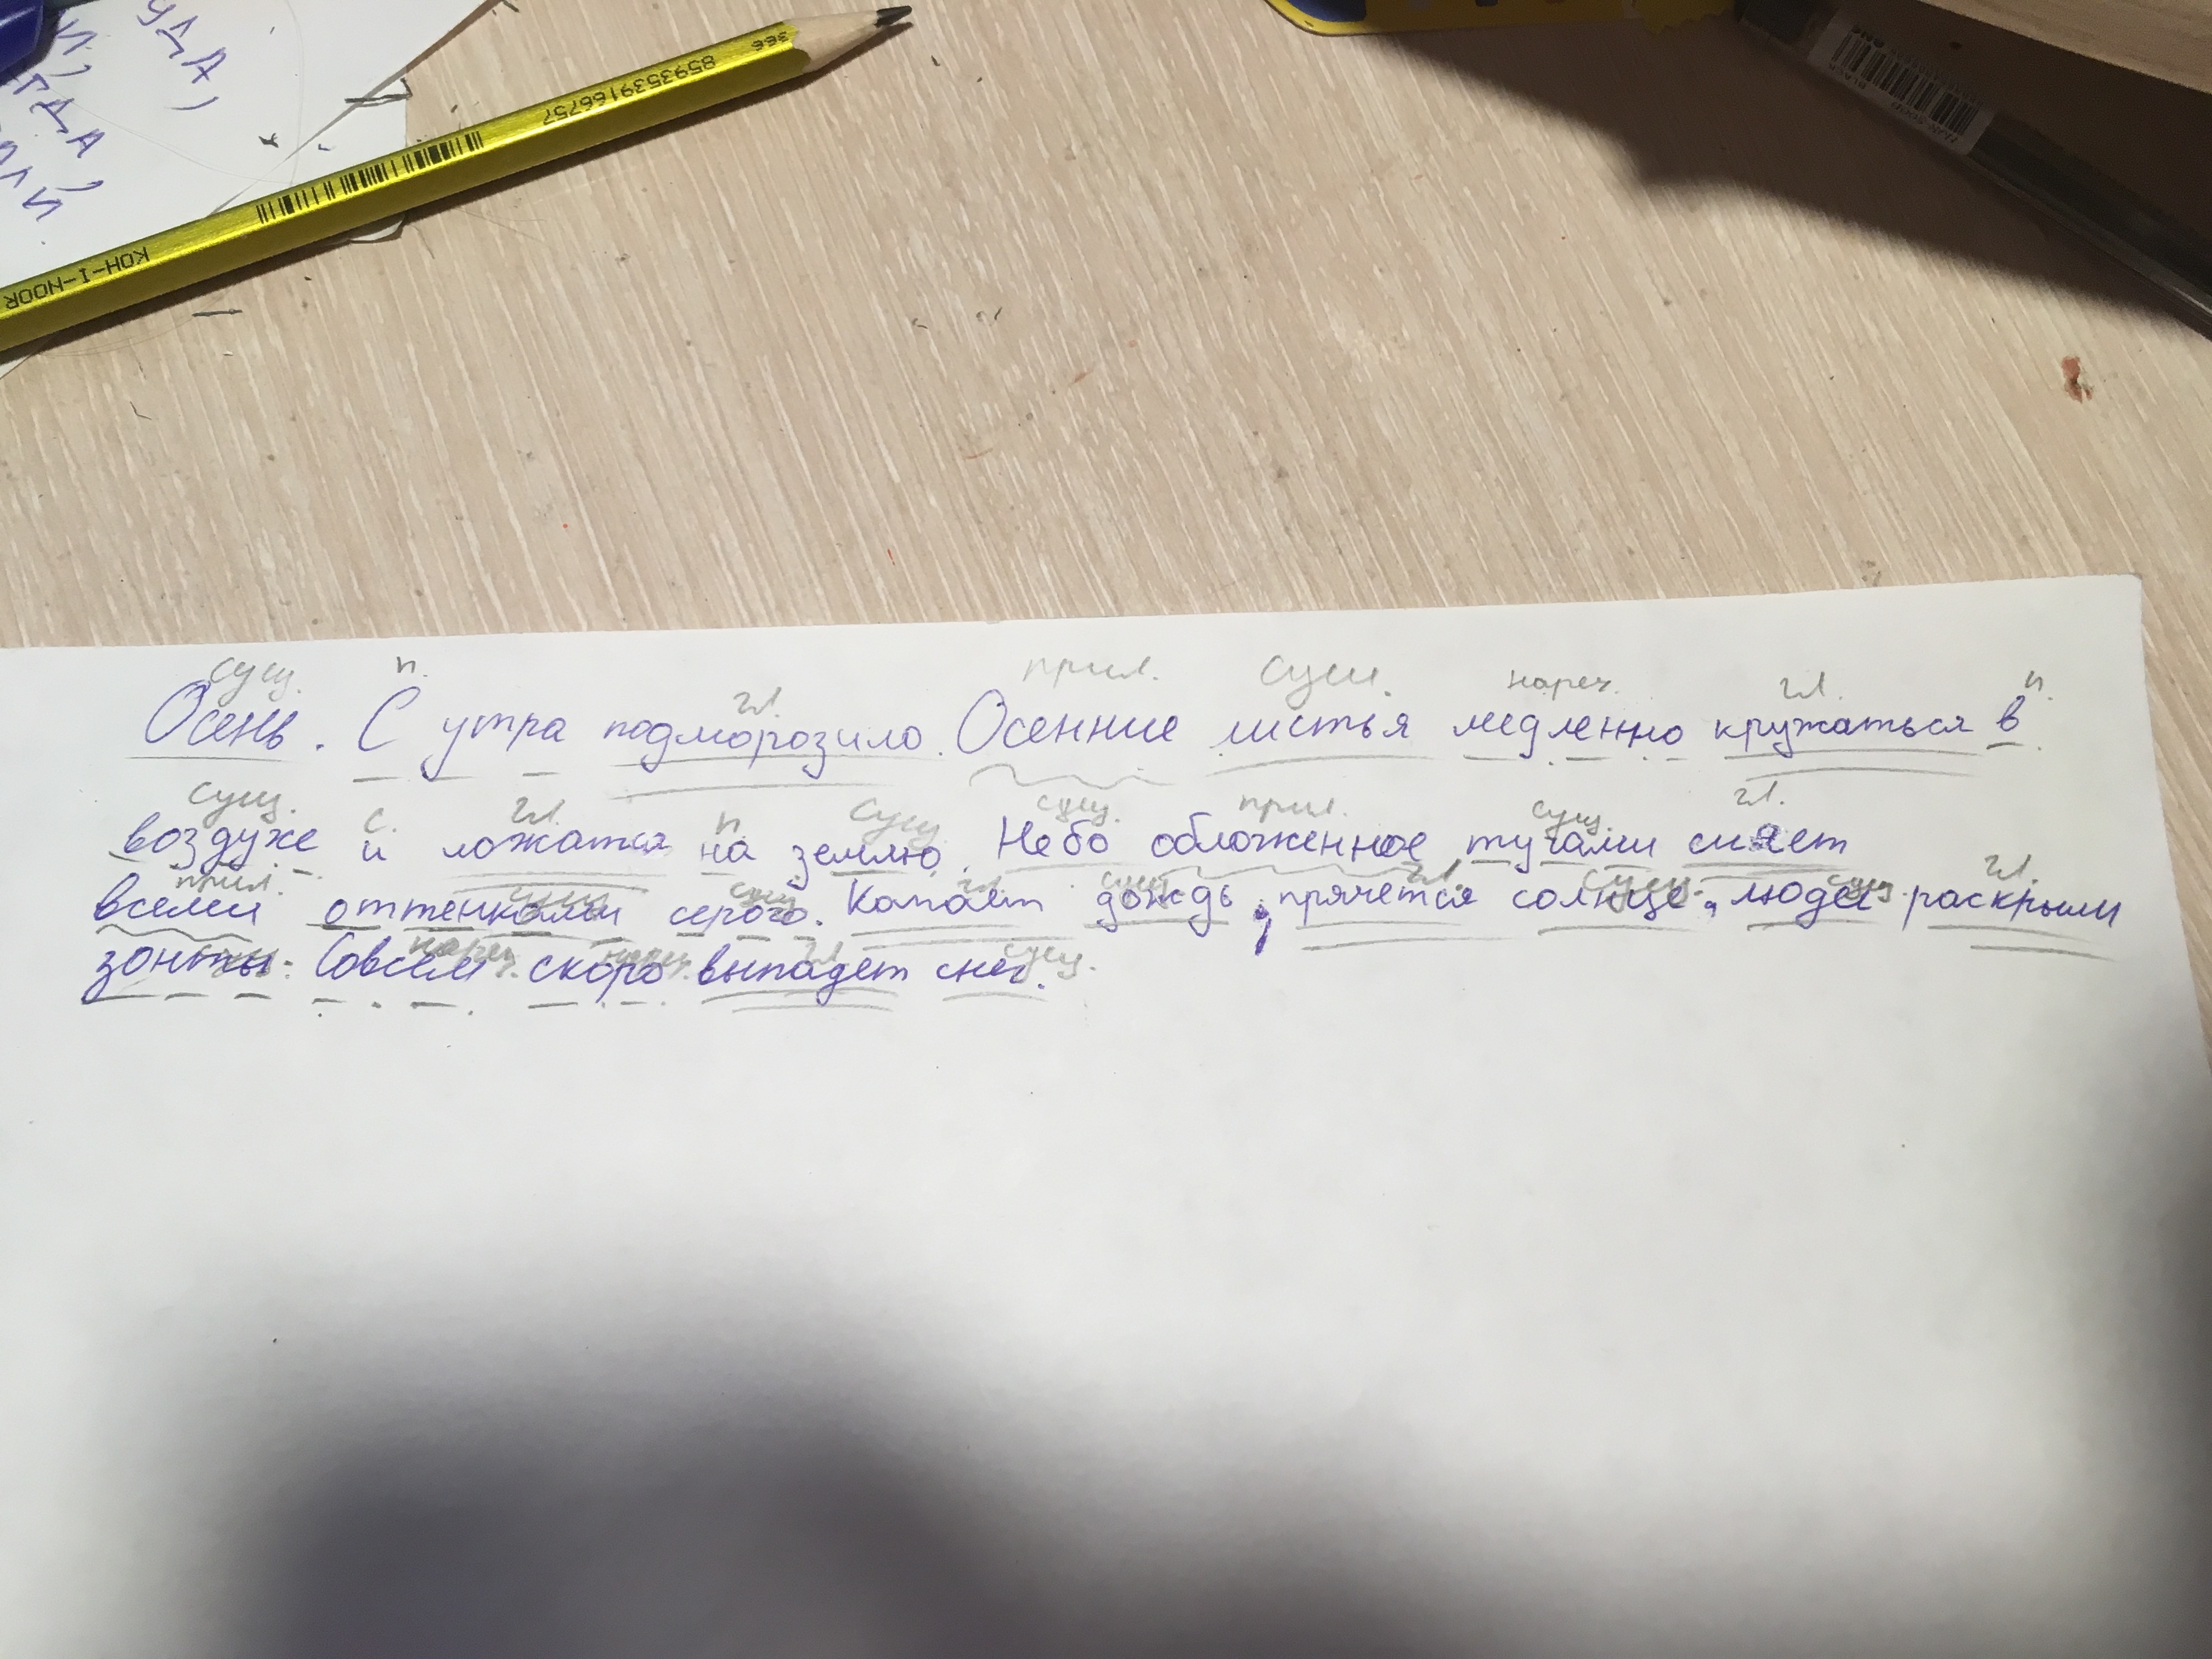 сущ. п. гл. прил. сущ. нареч. гл. п.
Осень. С утра подморозило. Осенние листья медленно кружаться в
сущ. с. гл. п сущ. сущ. прил. сущ гл.
воздухе и ложатся на землю. Небо обложенное тучами сияет
прил. сущ сущ. гл сущ гл сущ. сущ. гл
всеми оттенками серого. Капает дождь, прячется солнце, люди раскрыли
нареч. нареч. гл сущ.
зонты. Совсем скоро выпадет снег.
KOH-I-NOOR
8593539166757
366